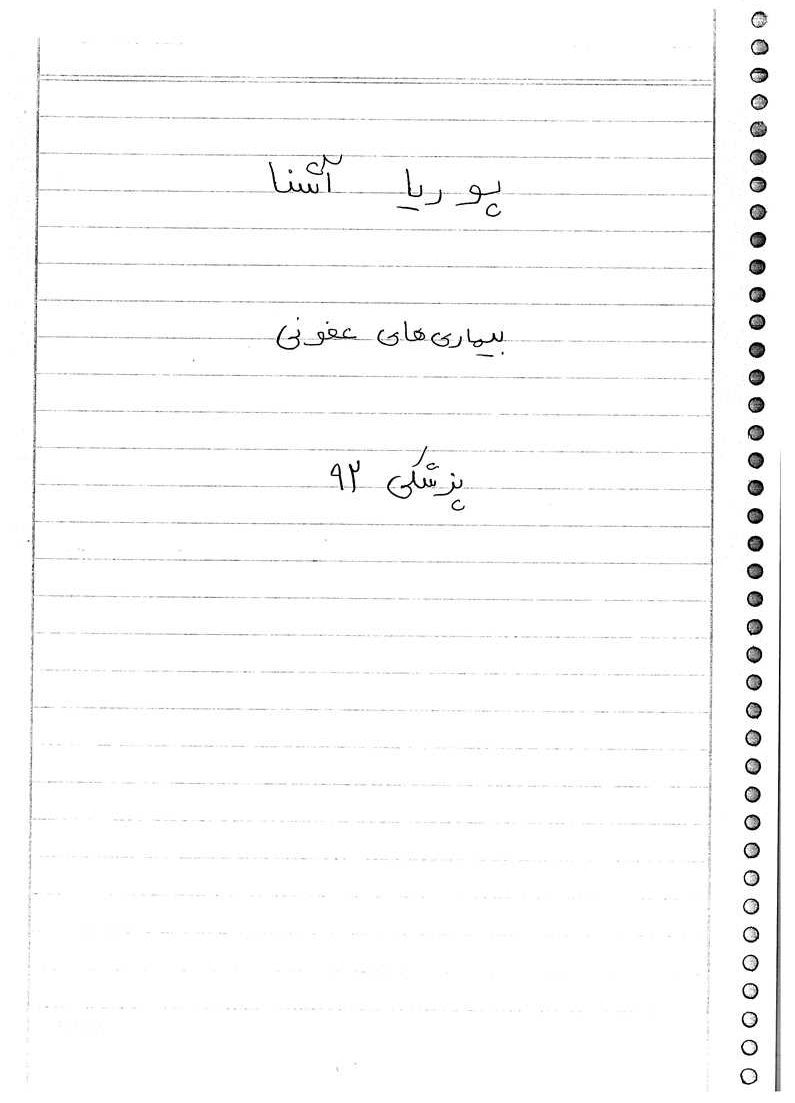 پوریا آشنا
بیماری‌های عفونی
پزشکی ۹۲